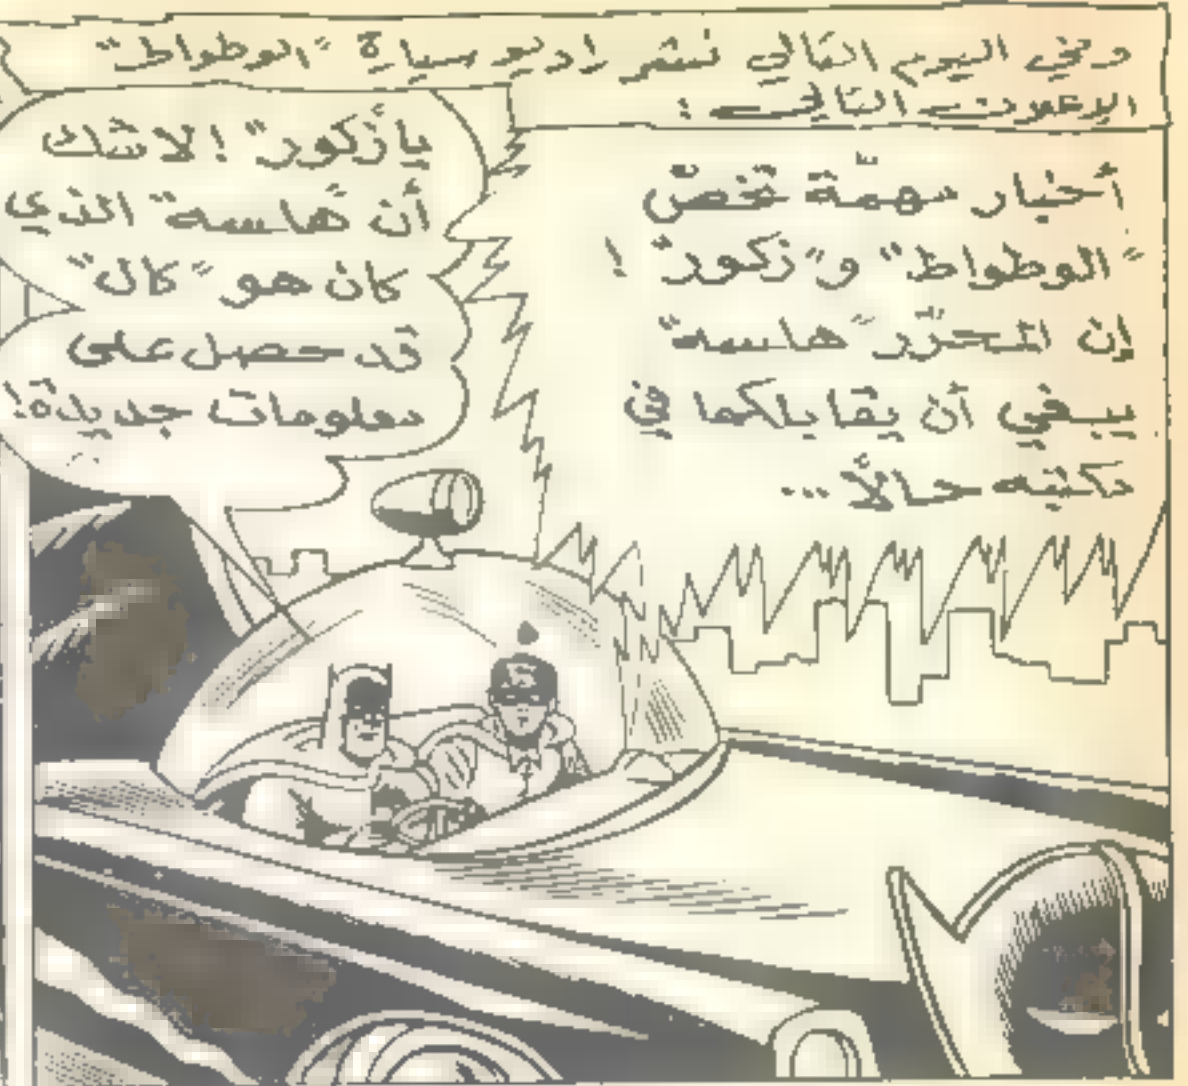 وفي اليوم التالي نشر راديو سيارة "الوطواط"
الاعلان التالي :
أخبار مهمّة تخصّ
"الوطواط" و"زكور" !
إن المحرّر "هلسه"
يبغي أن يقابلكما في
مكتبه حالاً ...
يا"زكور" ! لا شك
أن "هلسه" الذي
كان هو "كال"
قد حصل على
معلومات جديدة!